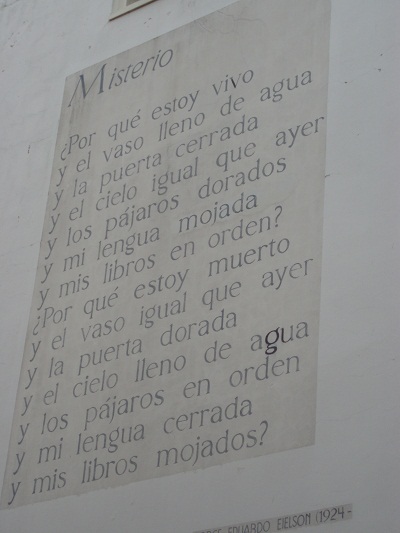 Misterio
¿Por qué estoy vivo
y el vaso lleno de agua
y la puerta cerrada
y el cielo igual que ayer
y los pájaros dorados
y mi lengua mojada
y mis libros en orden?
¿Por qué estoy muerto
y el vaso igual que ayer
y la puerta dorada
y el cielo lleno de agua
y los pájaros en orden
y mi lengua cerrada
y mis libros mojados?
EDUARDO EIELSON (1924 -